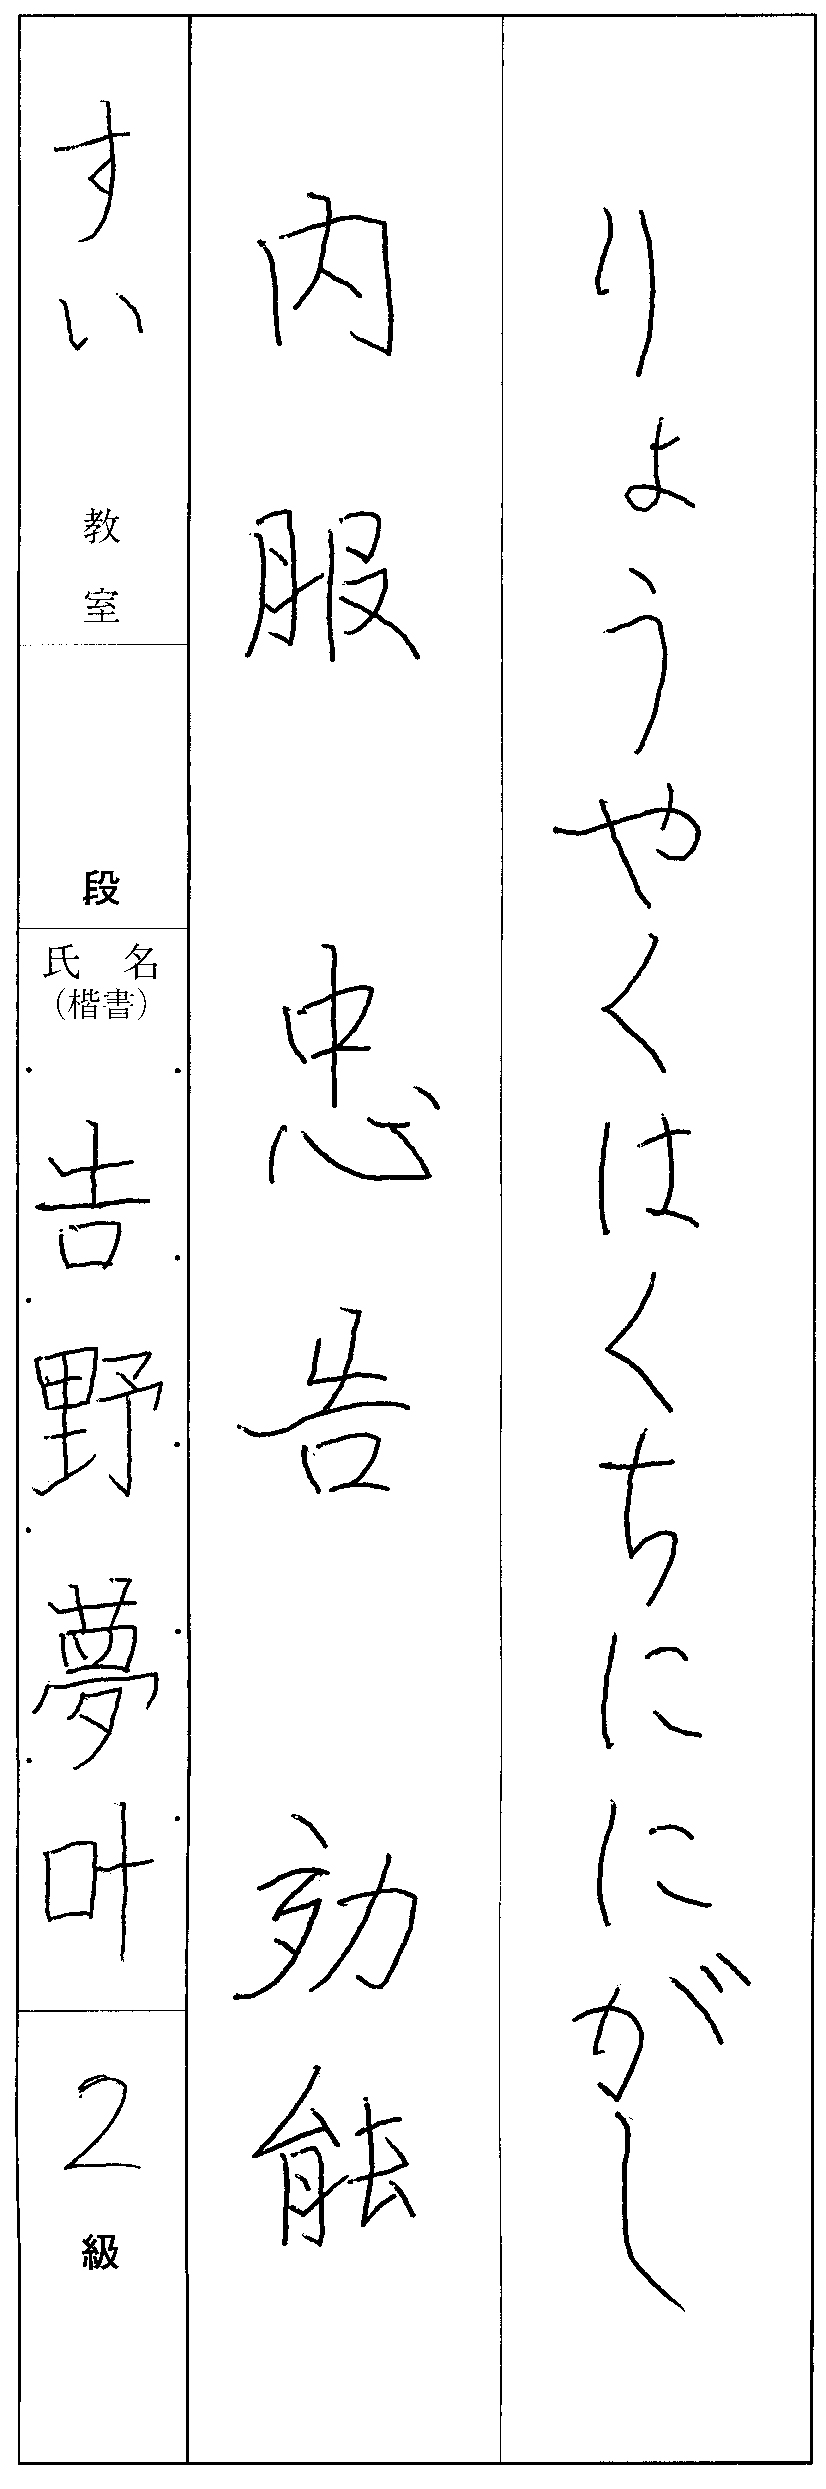 りょうやくはくちににがし
内服 忠告 効能
すい 教室
段
氏名
(楷書)
吉野夢叶
2級